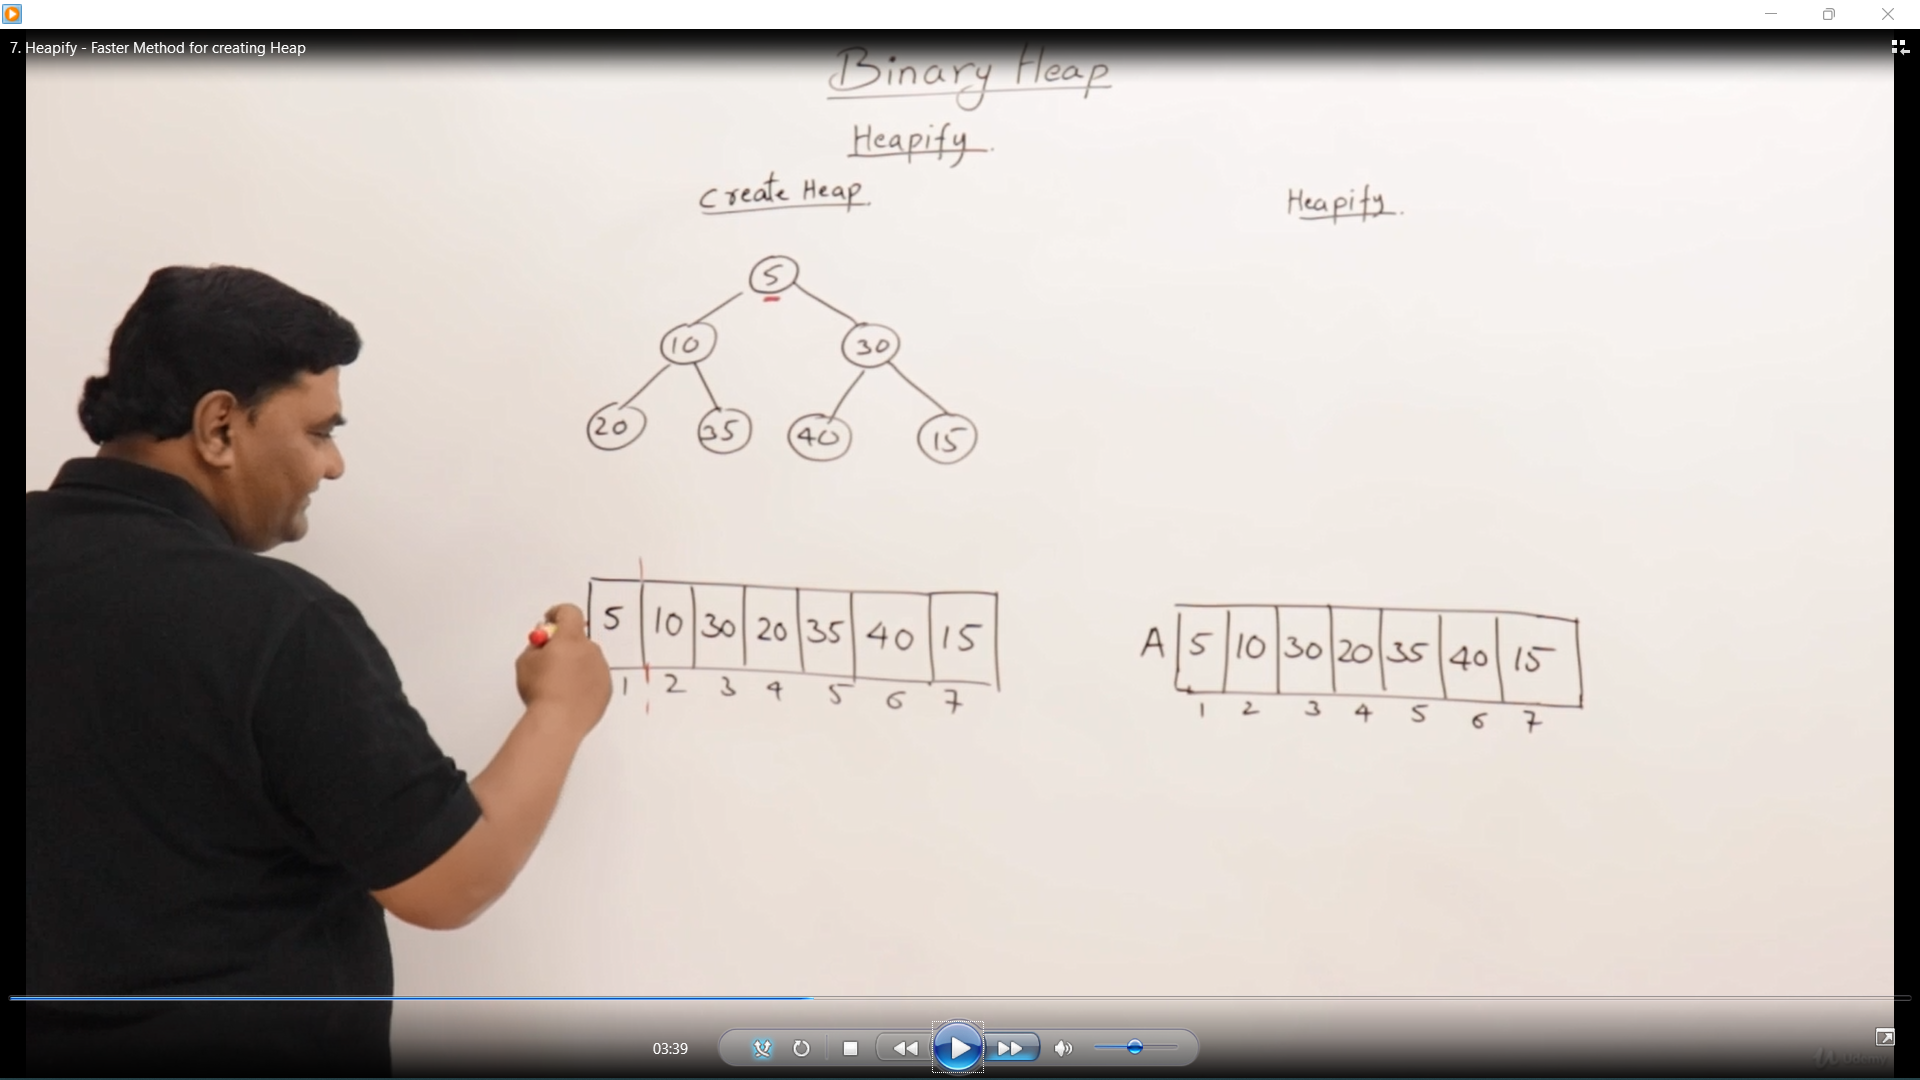 7. Heapify - Faster Method for creating Heap
Binary Heap
Heapify.
Create Heap.
Heapify.
5
10 30
20 35 40 15
5 10 30 20 35 40 15
1 2 3 4 5 6 7
A 5 10 30 20 35 40 15
1 2 3 4 5 6 7
03:39
Udemy